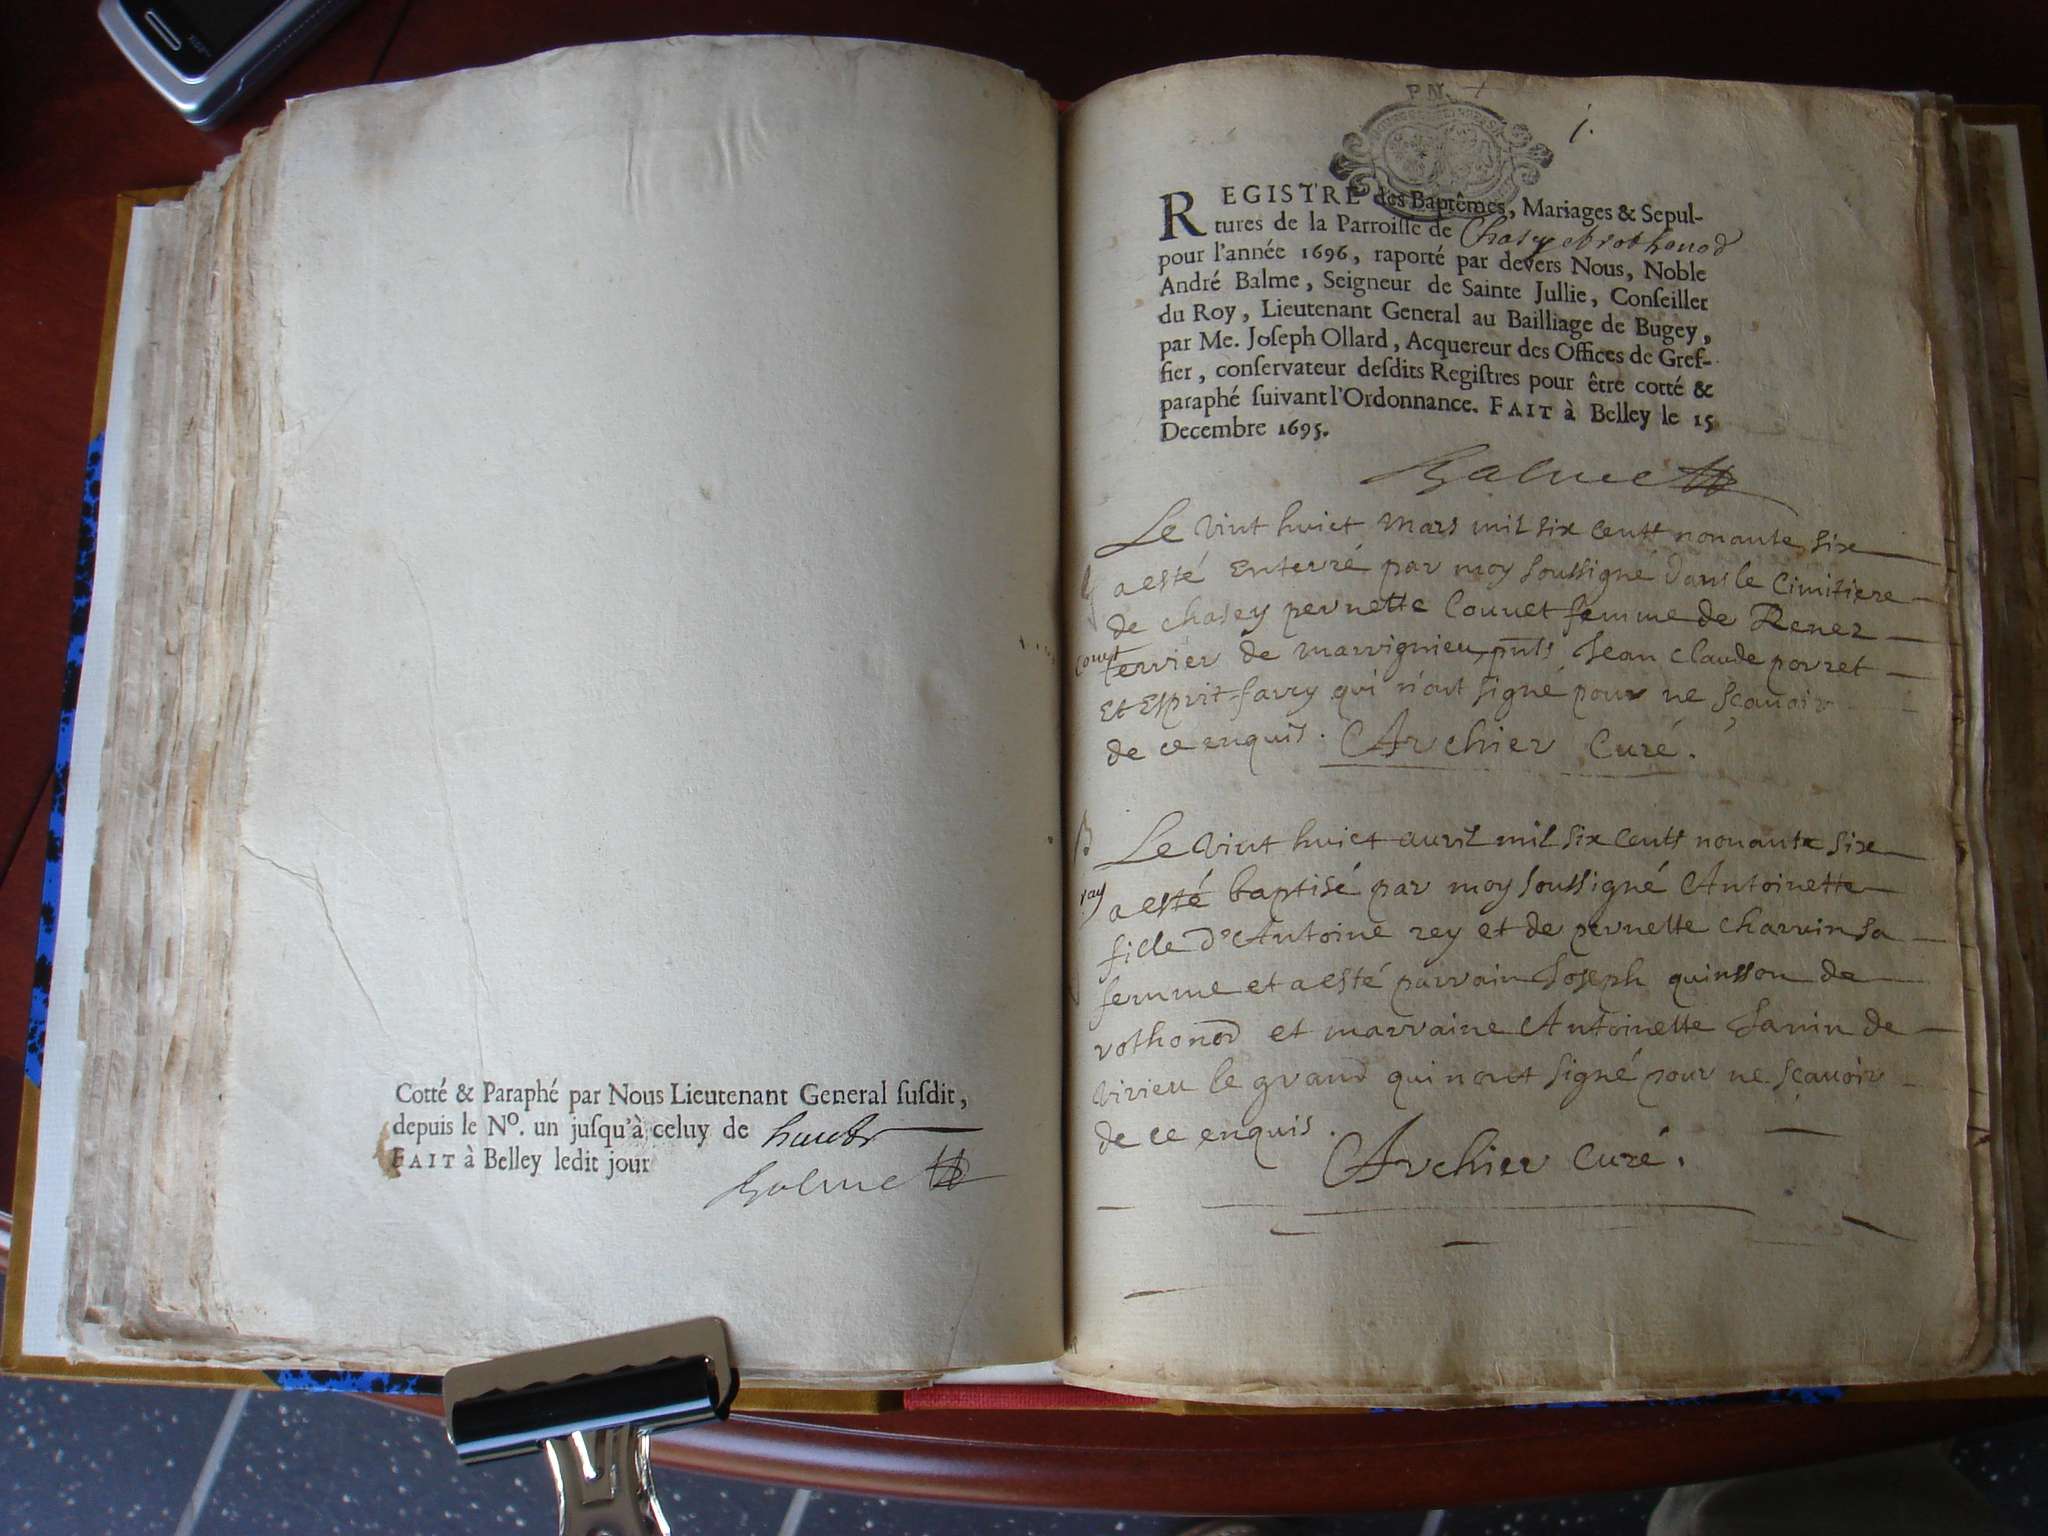 Cotté & Paraphé par Nous Lieutenant General ſuſdit,
depuis le Nº. un juſqu'à celuy de
FAIT à Belley ledit jour
Balme
P N.
1.
REGISTRE des Baptêmes, Mariages & Sepul-
tures de la Parroiſſe de Chasey et rothonod
pour l'année 1696, raporté par devers Nous, Noble
André Balme, Seigneur de Sainte Jullie, Conſeiller
du Roy, Lieutenant General au Bailliage de Bugey,
par Me. Joſeph Ollard, Acquereur des Offices de Gref-
fier, conſervateur deſdits Regiſtres pour être cotté &
paraphé ſuivant l'Ordonnance. FAIT à Belley le 15
Decembre 1695.
Balme
Le vint huict mars mil six cents nonante six
a esté enterré par moy soussigné dans le Cimitiere
de chasey pernette Couuet femme de Renez
Couet
ferrier de marrignieu, pnts Jean claude porret
et Esprit favry qui n'ont signé pour ne scauoir
de ce enquis. Archier Curé.
B
Le vint huict auril mil six cents nonante six
ray
a esté baptisé par moy soussigné Antoinette
fille d'Antoine rey et de pernette charuin sa
femme et a esté parrain Joseph quinsson de
rothonod et marraine Antoinette Janin de
virieu le grand qui n'ont signé pour ne scauoir
de ce enquis.
Archier Curé.